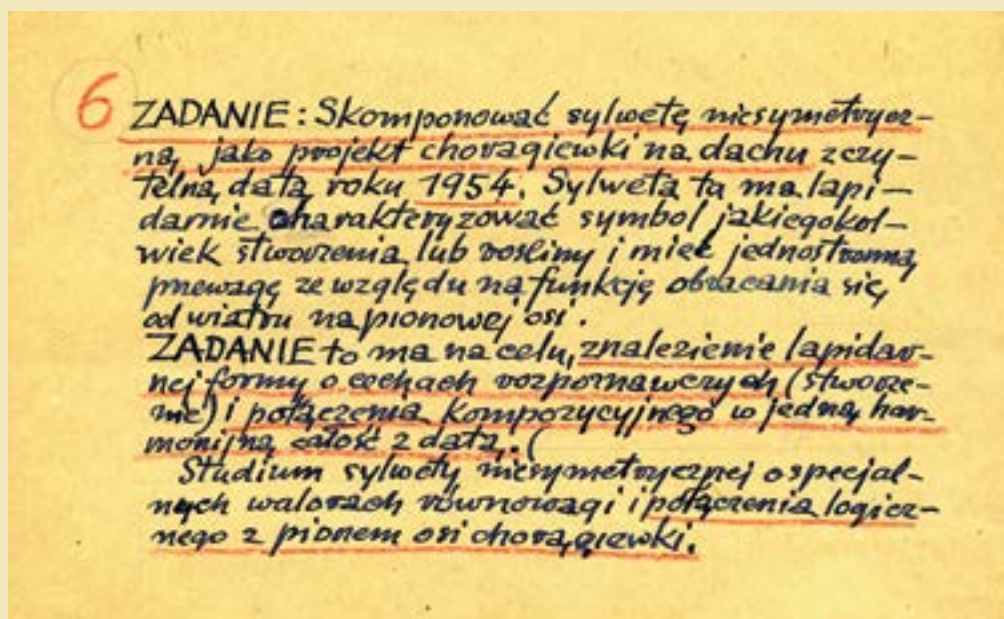 6 ZADANIE: Skomponować sylwetę niesymetrycz-
ną, jako projekt chorągiewki na dachu z czy-
telną datą roku 1954. Sylweta ta ma lapi-
darnie charakteryzować symbol jakiegokol-
wiek stworzenia lub rośliny i mieć jednostronną
przewagę ze względu na funkcję obracania się
od wiatru na pionowej osi.
ZADANIE to ma na celu, znalezienie lapidar-
nej formy o cechach rozpoznawczych (stworze-
nie) i połączenia kompozycyjnego w jedną har-
monijną całość z datą. (
Studium sylwety niesymetrycznej o specjal-
nych walorach równowagi i połączenia logicz-
nego z pionem osi chorągiewki.